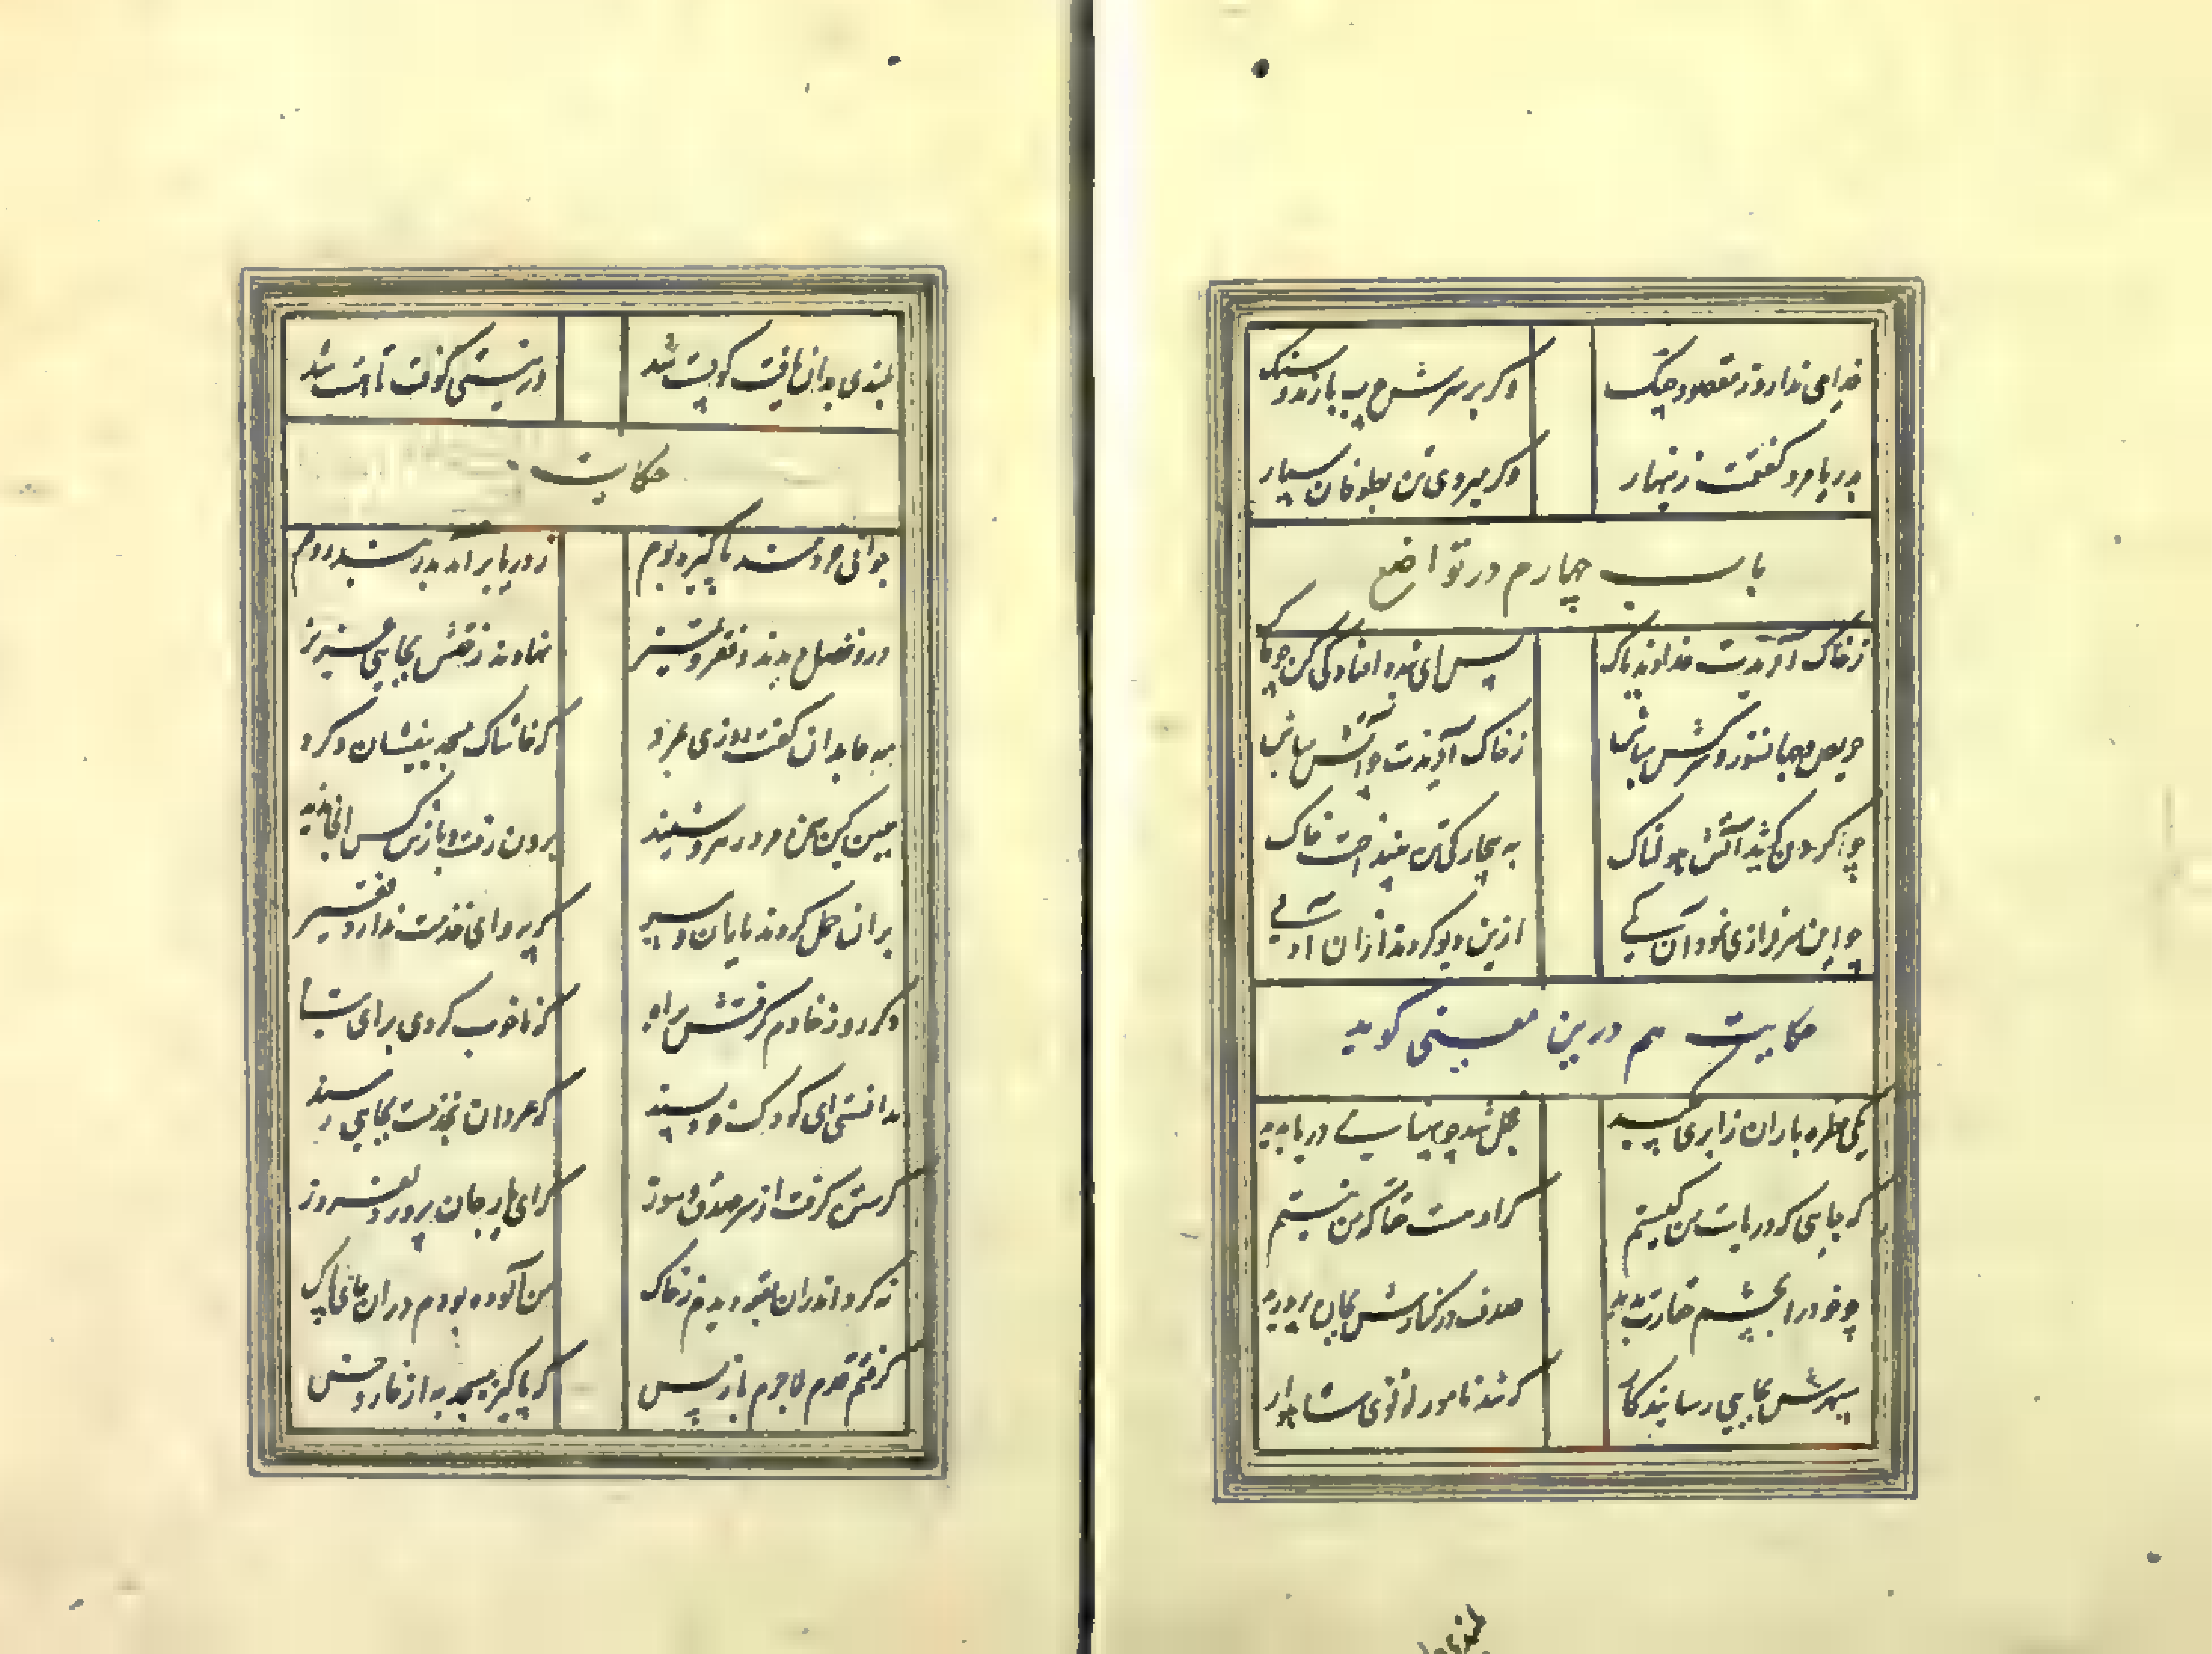 فدایی ندارد ز مقصود چنگ وکر بر سرش تیر بارند و سنک
بدریا مرو کفتمت زینهار وکر میروی تن بطوفان سپار
باب چهارم در تواضع
ز خاک آفریدت خداوند پاک پس ای بنده افتادکی کن چو خاک
حریص و جهانسوز و سرکش مباش ز خاک آفریدت چو آتش مباش
چو کردن کشید آتش هولناک به بیچارکی تن بینداخت خاک
چو این سرفرازی نمود آن کمی ازین دیو کردند ازان آدمی
حکایت هم درین معنی کوید
یکی قطره باران ز ابری چکید خجل شد چو پهنای دریا بدید
که جایی که دریاست من کیستم کر او هست حقا که من نیستم
چو خود را بچشم حقارت بدید صدف در کنارش بجان پرورید
سپهرش بجایی رسانید کار که شد نامور لؤلؤی شاهوار
بلندی بدان یافت کو پست شد در نیستی کوفت تا هست شد
حکایت
جوانی خردمند پاکیزه بوم ز دریا برآمد بدربند روم
درو فضل دیدند و فقر و تمیز نهادند رختش بجایی عزیز
مه عابدان کفت روزی بمرد که خاشاک مسجد بیفشان و کرد
همین کین سخن مرد رهرو شنید برون رفت و بازش کس آنجا ندید
بران حمل کردند یاران و پیر که پروای خدمت ندارد فقیر
دکر روز خادم کرفتش براه که ناخوب کردی برای تباه
ندانستی ای کودک خود پسند که مردان بخدمت بجایی رسند
کرستن کرفت از سر صدق و سوز که ای یار جان پرور دلفروز
نه کرد اندران بقعه دیدم نه خاک من آلوده بودم دران جای پاک
کرفتم قدم لاجرم باز پس که پاکیزه مسجد به از خار و خس